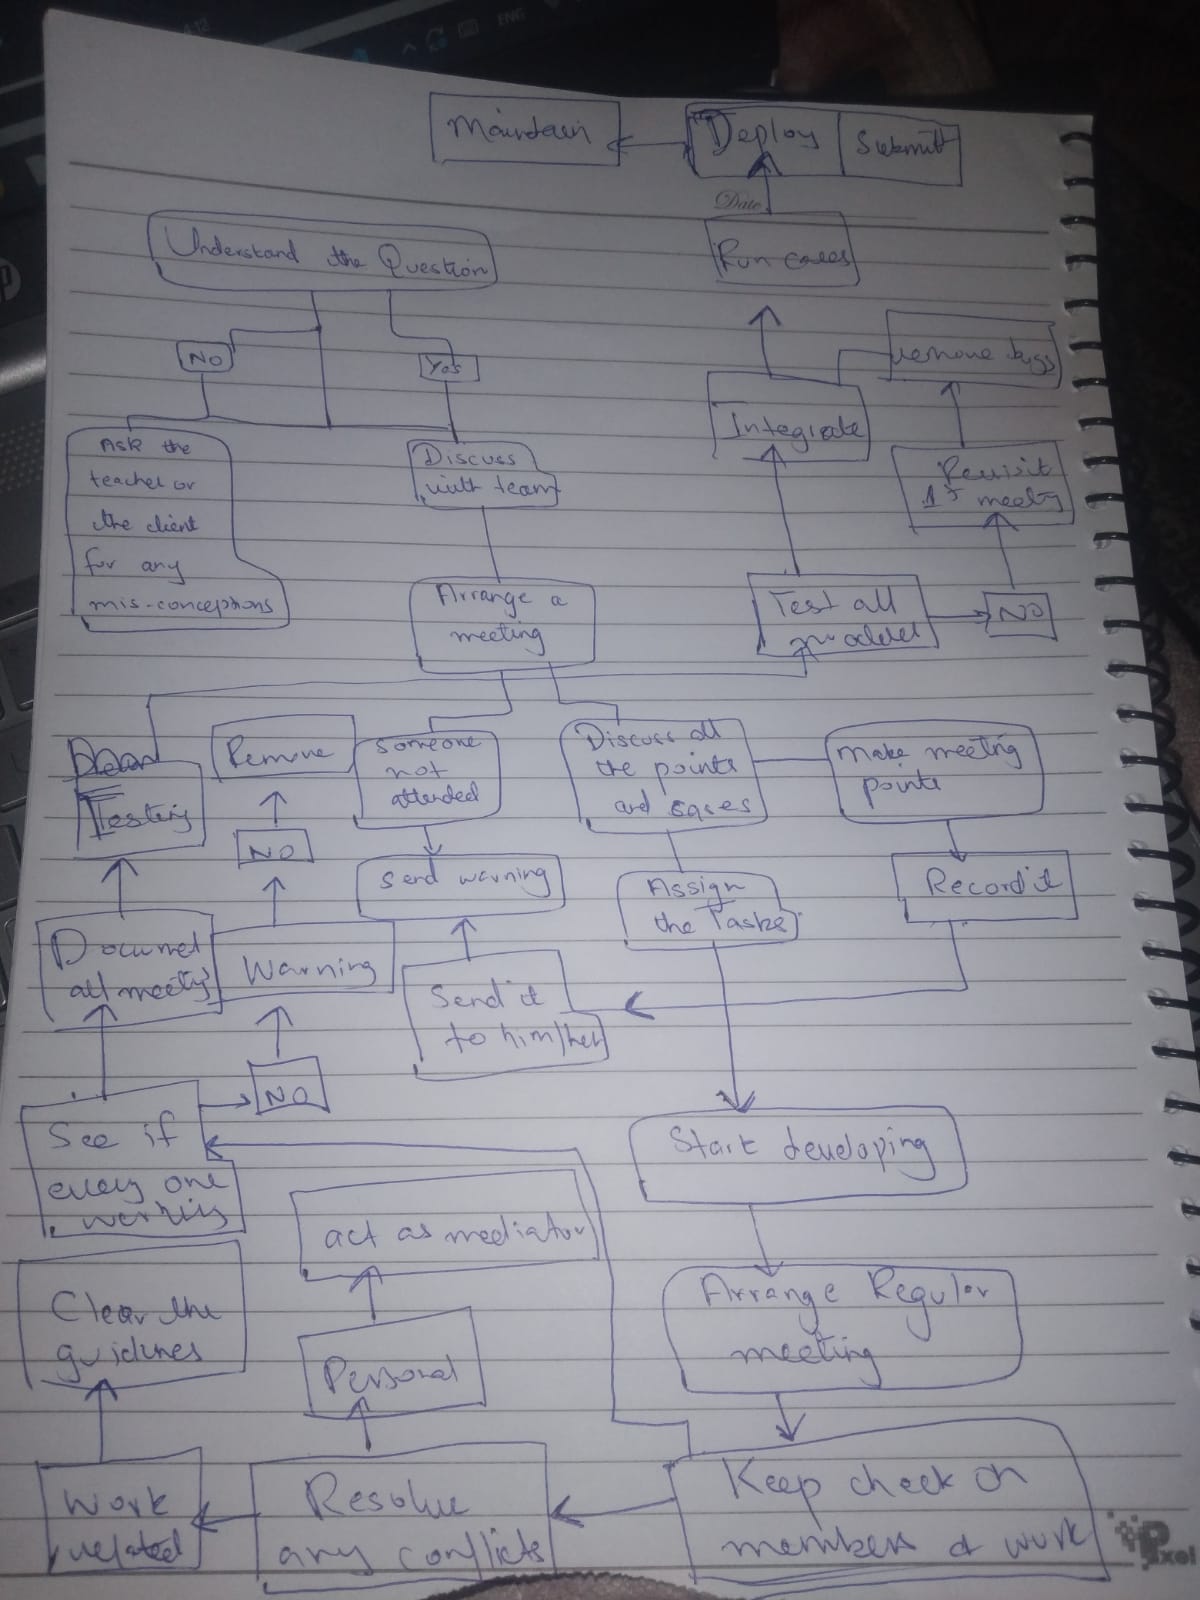 ENG
Maintain
Deploy
Submit
Date
Run cases
Understand the Question
NO
Yes
remove bugs
Integrate
Ask the
teacher or
the client
for any
mis-conceptions
Discuss
with team
Revisit
1st meetig
Arrange a
meeting
Test all
NO
Remove
Someone
not
attended
Discuss all
the points
and cases
Make meeting
points
Testing
NO
Send warning
Assign
the Tasks
Record it
Documet
all meetig
Warning
Send it
to him/her
NO
See if
every one
working
Start developing
act as mediator
Clear the
guidlines
Arrange Regular
meeting
Personal
Work
related
Resolve
any conflicts
Keep check on
members & work
Pixel